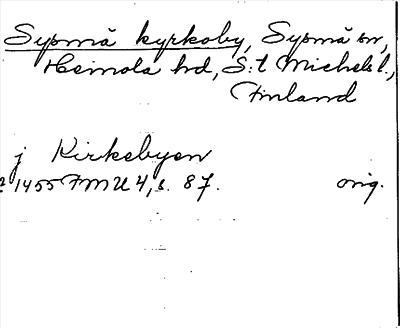 Sysmä kyrkoby, Sysmä sn,
Heinola hd, S:t Michels l.,
Finland
j Kirkebyen
1455 FMU 4, s. 87. orig.